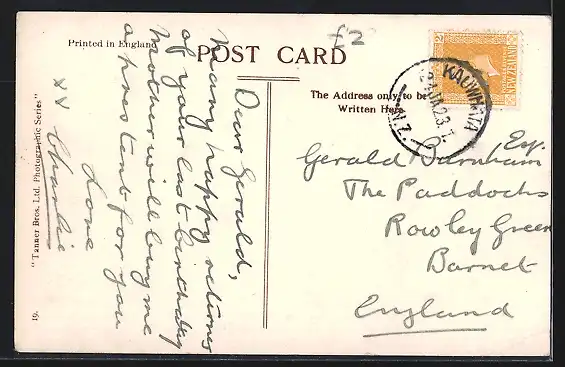 Printed in England
POST CARD
£2
The Address only to be
Written Here
Dear Gerald,
Many happy returns
of your last birthday
Mother will buy me
a present for you
Love
Charlie
xx
"Tanner Bros. Ltd. Photographic Series"
19.
Gerald Barnham Esq.
The Paddocks
Rowley Green
Barnet
England
NEW ZEALAND
2
KAUWHATA
JA 23
N.Z.